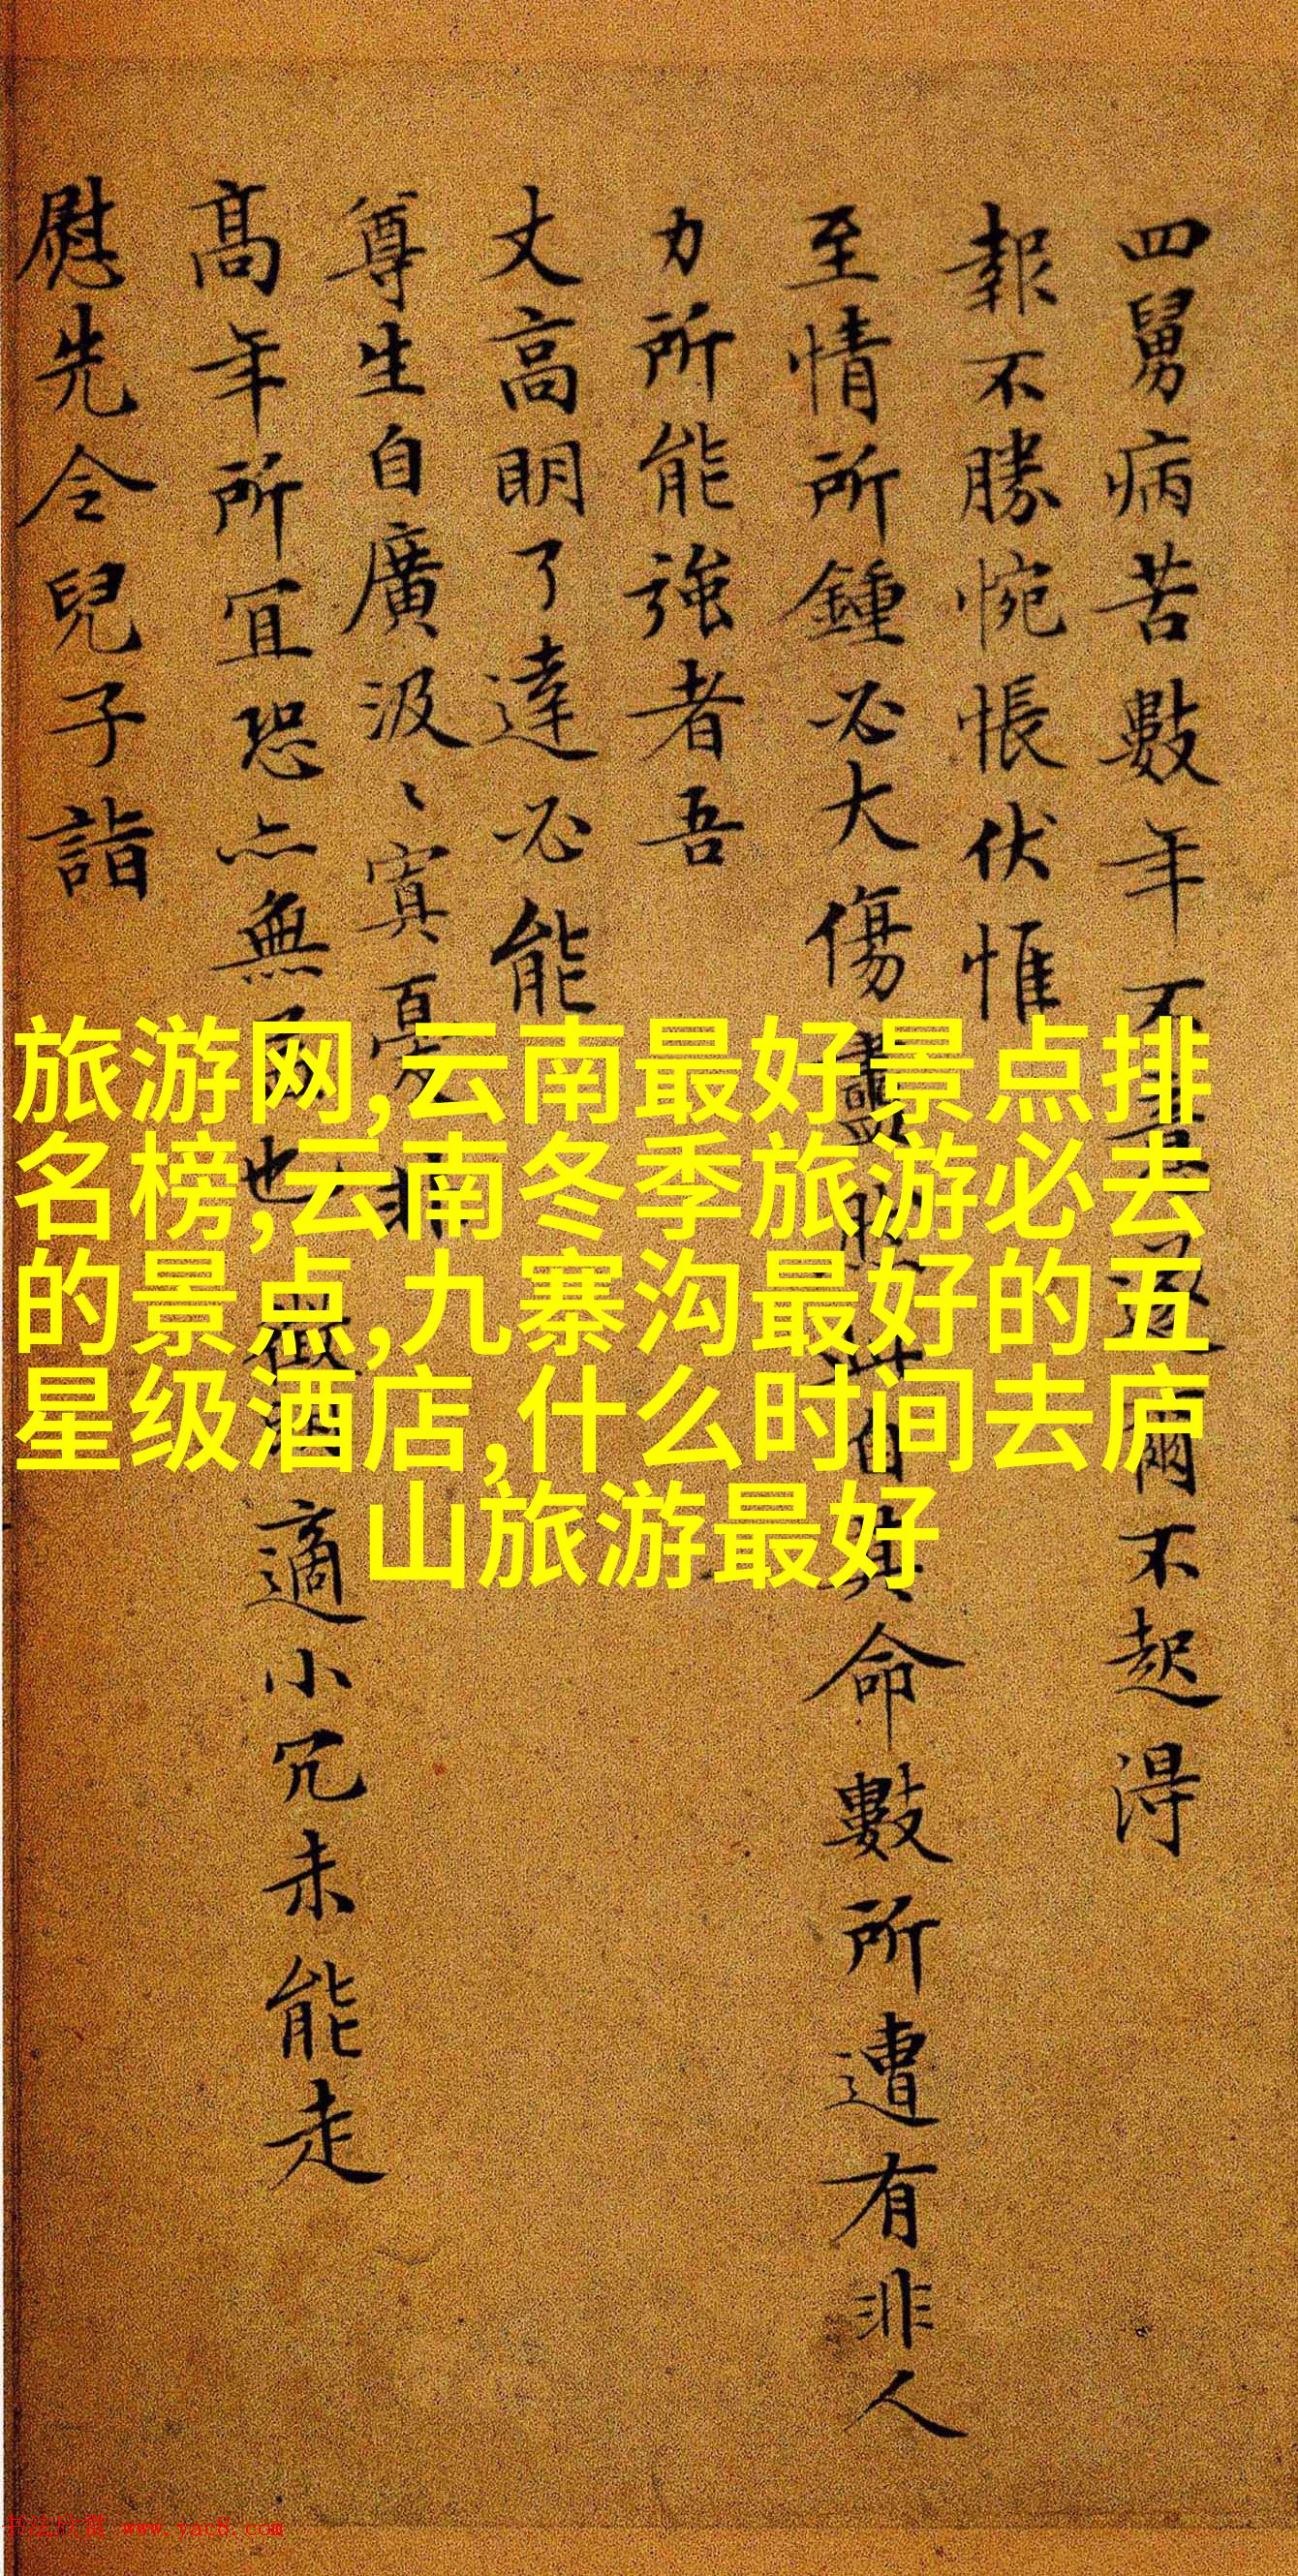 四舅病苦數年不
不起得
報不勝惋悵伏惟
至情所鍾必大傷
自
命數所遭有非人
力所能強者吾
丈高明了達必能
尊生自廣汲〻寘憂
非
高年所宜恐亦無
也
適小冗未能走
慰先令兒子詣
旅游网,云南最好景点排
名榜,云南冬季旅游必去
的景点,九寨沟最好的五
星级酒店,什么时间去庐
山旅游最好
书法欣赏 www.yac8.com